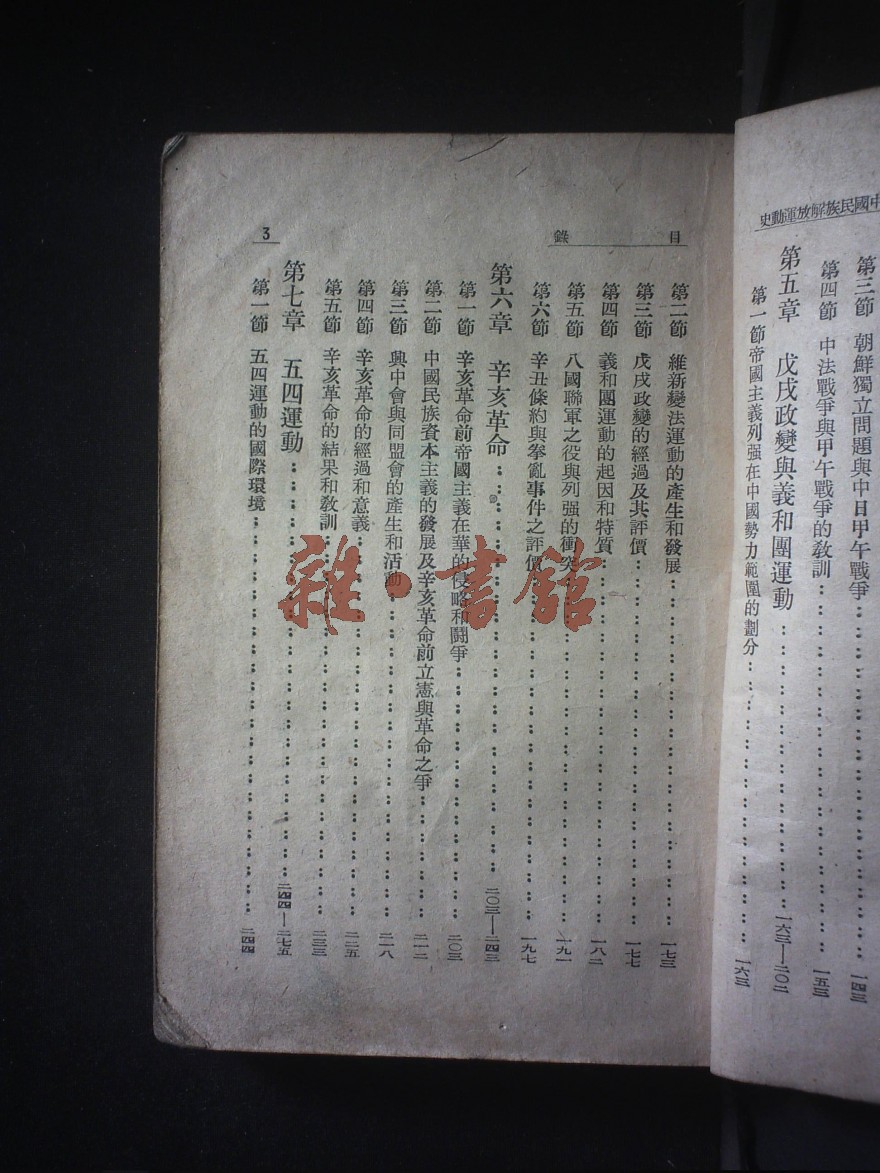 中國民族解放運動史
第三節 朝鮮獨立問題與中日甲午戰爭 一四三
第四節 中法戰爭與甲午戰爭的敎訓 一五三
第五章 戊戌政變與義和團運動 一六三—二〇二
第一節 帝國主義列强在中國勢力範圍的劃分 一六三
目錄
3
第二節 維新變法運動的產生和發展 一七三
第三節 戊戌政變的經過及其評價 一七七
第四節 義和團運動的起因和特質 一八二
第五節 八國聯軍之役與列强的衝突 一九一
第六節 辛丑條約與拳亂事件之評價 一九七
第六章 辛亥革命 二〇三—二四三
第一節 辛亥革命前帝國主義在華的侵略和鬭爭 二〇三
第二節 中國民族資本主義的發展及辛亥革命前立憲與革命之爭 二一二
第三節 興中會與同盟會的產生和活動 二一八
第四節 辛亥革命的經過和意義 二二五
第五節 辛亥革命的結果和敎訓 二三三
第七章 五四運動 二四四—二七五
第一節 五四運動的國際環境 二四四
雜·書館